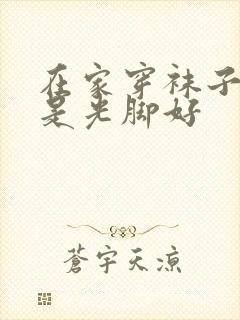 在家穿袜子
是光脚好
蒼宇天涼